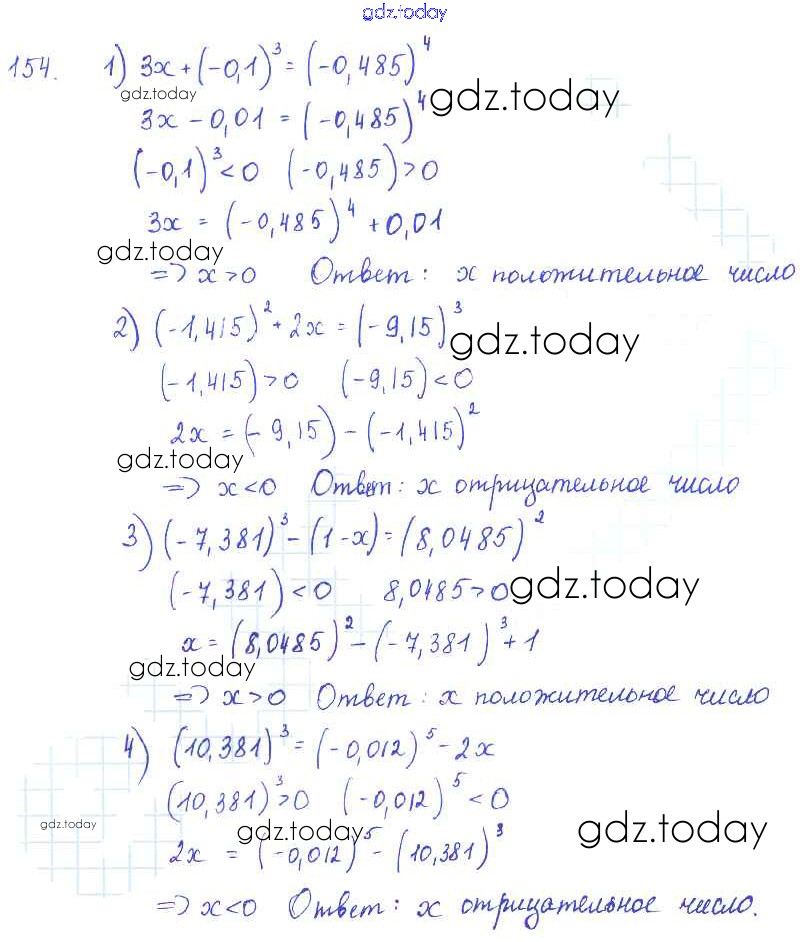 gdz.today
154. 1) 3x + (-0,1)³ = (-0,485)⁴
gdz.today
gdz.today
3x - 0,01 = (-0,485)⁴
(-0,1)³ < 0 (-0,485) > 0
3x = (-0,485)⁴ + 0,01
gdz.today
=> x > 0 Ответ: x положительное число
2) (-1,415)² + 2x = (-9,15)³
gdz.today
(-1,415) > 0 (-9,15) < 0
2x = (-9,15) - (-1,415)²
gdz.today
=> x < 0 Ответ: x отрицательное число
3) (-7,381)³ - (1-x) = (8,0485)²
(-7,381) < 0 8,0485 > 0
gdz.today
x = (8,0485)² - (-7,381)³ + 1
gdz.today
=> x > 0 Ответ: x положительное число
4) (10,381)³ = (-0,012)⁵ - 2x
(10,381)³ > 0 (-0,012)⁵ < 0
gdz.today
gdz.today
gdz.today
2x = (-0,012)⁵ - (10,381)³
=> x < 0 Ответ: x отрицательное число.